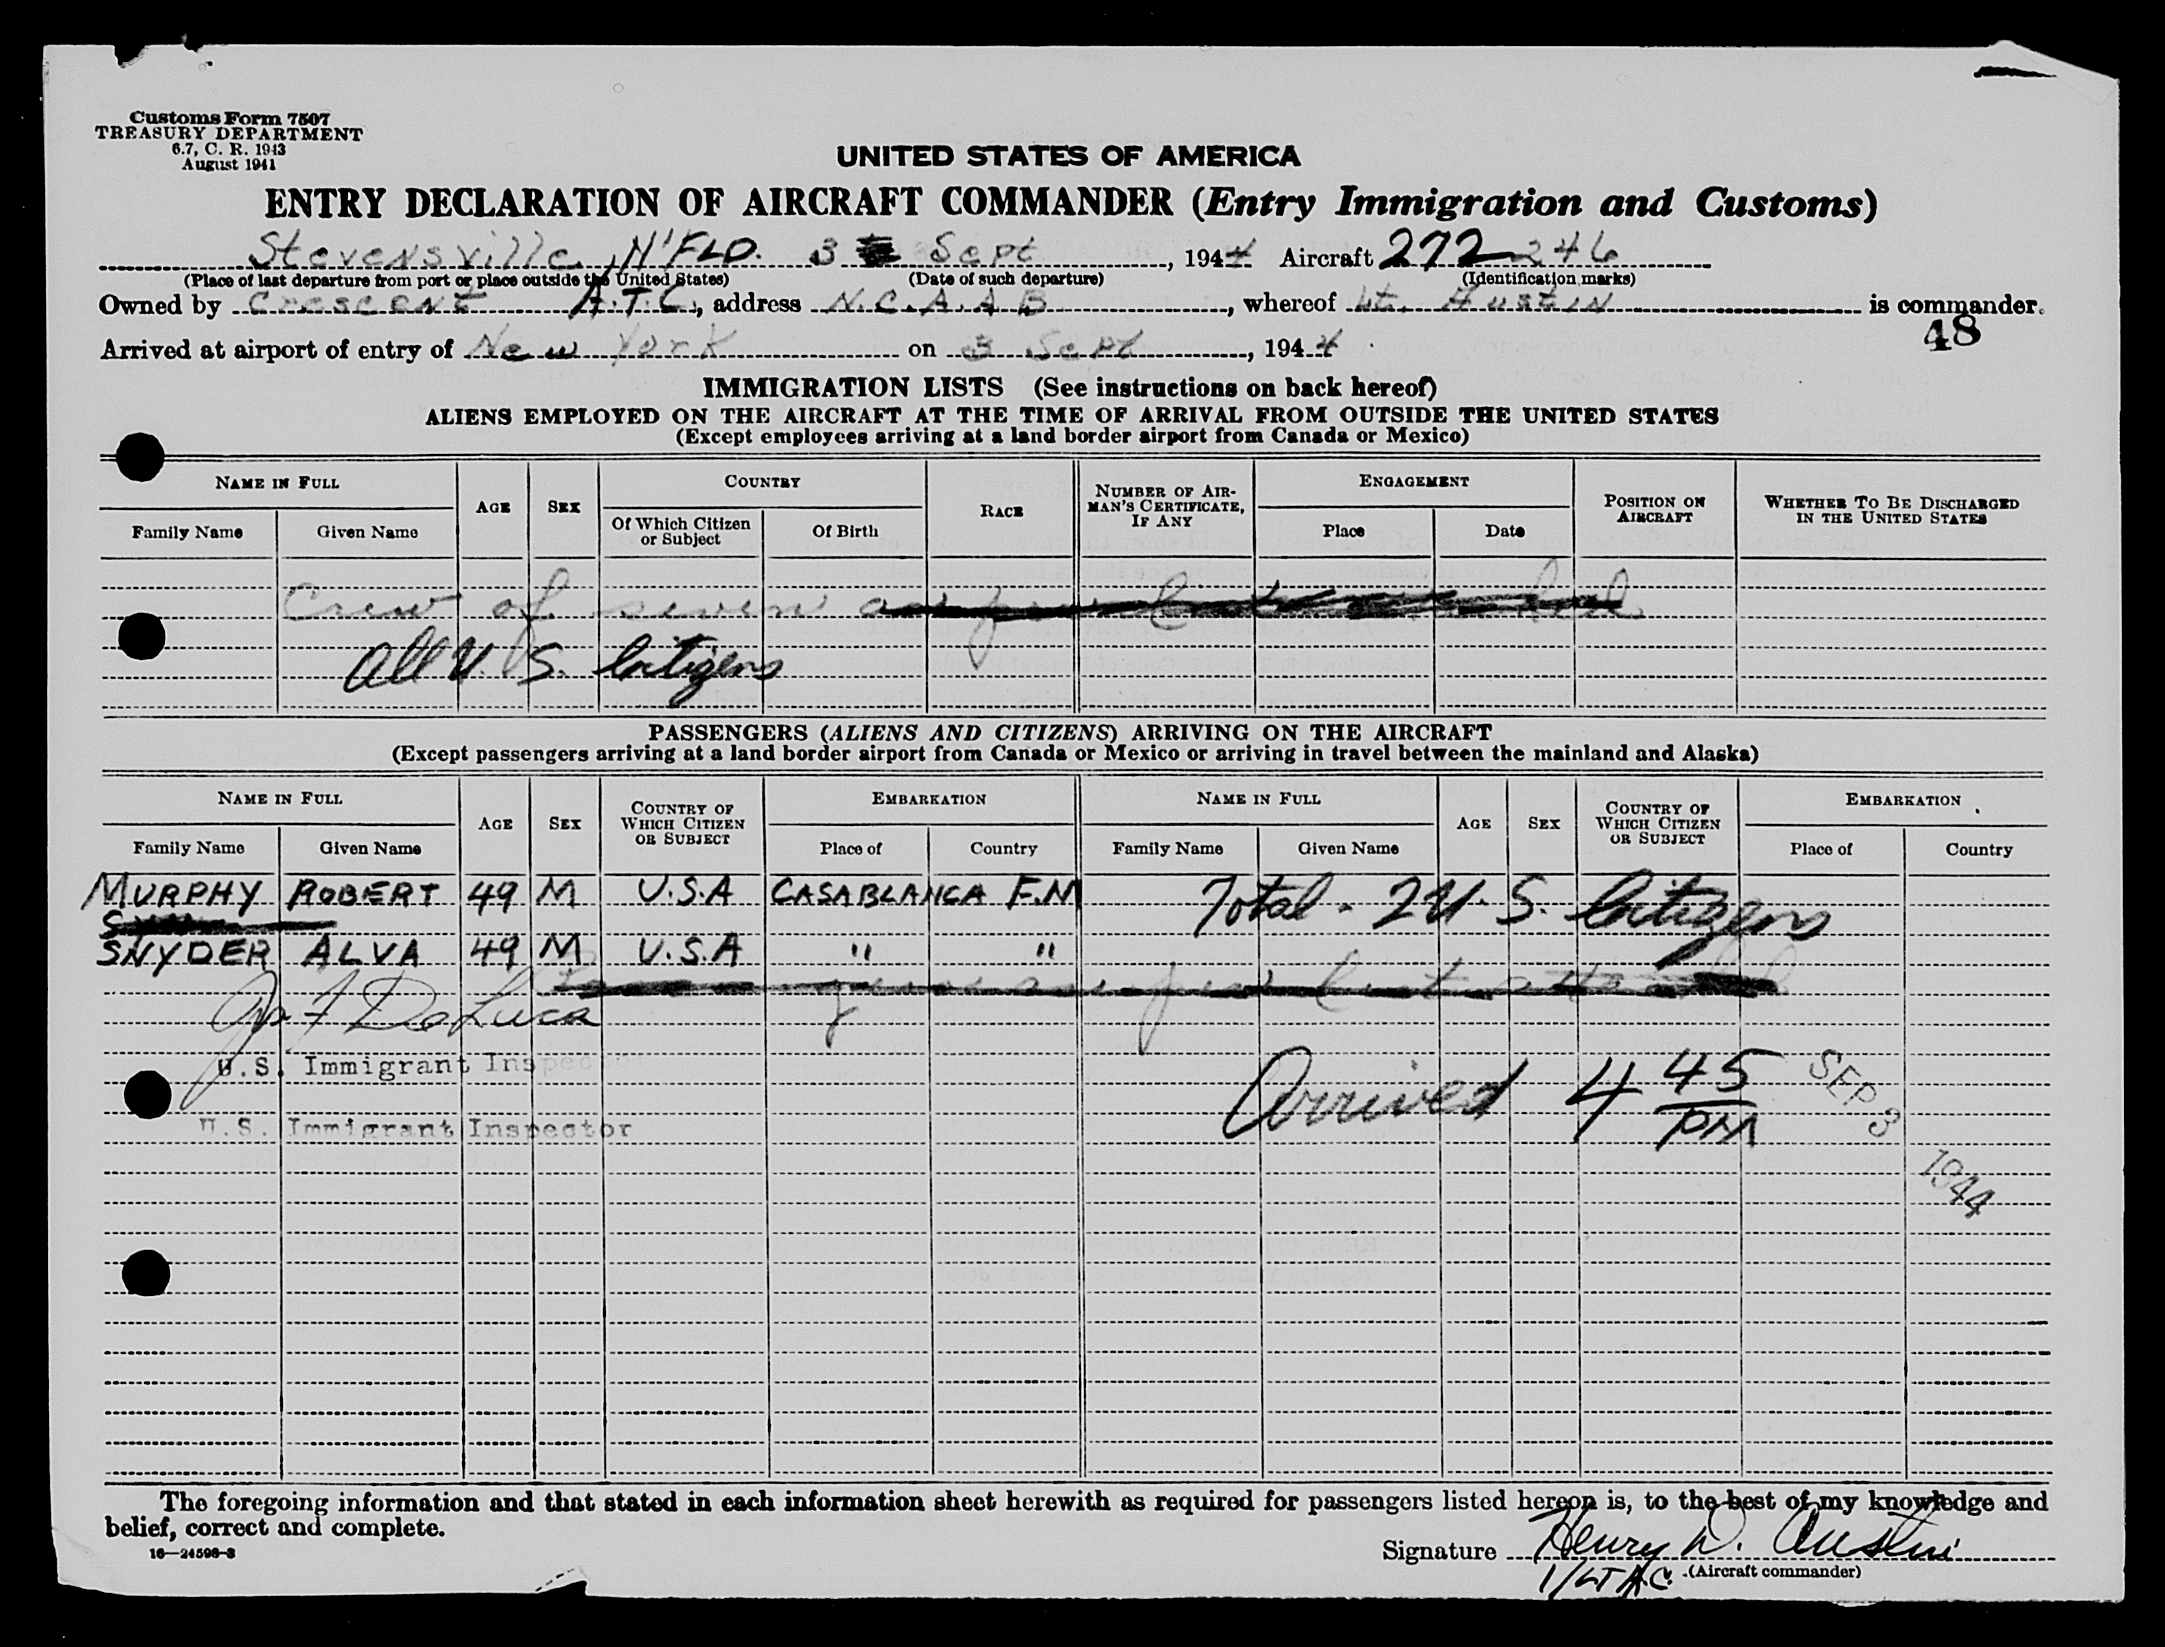 Customs Form 7507
TREASURY DEPARTMENT
6.7, C. R. 1943
August 1941
UNITED STATES OF AMERICA
ENTRY DECLARATION OF AIRCRAFT COMMANDER (Entry Immigration and Customs)
Stevensville, N'FLD. 3 Sept, 1944 Aircraft 272246
(Place of last departure from port or place outside the United States) (Date of such departure) (Identification marks)
Owned by Crescent A.T.C., address N.C.A.A.B, whereof Lt. Austin is commander.
48
Arrived at airport of entry of New York on 3 Sept, 1944
IMMIGRATION LISTS (See instructions on back hereof)
ALIENS EMPLOYED ON THE AIRCRAFT AT THE TIME OF ARRIVAL FROM OUTSIDE THE UNITED STATES
(Except employees arriving at a land border airport from Canada or Mexico)
NAME IN FULL AGE SEX COUNTRY RACE NUMBER OF AIRMAN'S CERTIFICATE, IF ANY ENGAGEMENT POSITION ON AIRCRAFT WHETHER TO BE DISCHARGED IN THE UNITED STATES
Family Name Given Name Of Which Citizen or Subject Of Birth Place Date
Crew of seven
all U.S. Citizens
PASSENGERS (ALIENS AND CITIZENS) ARRIVING ON THE AIRCRAFT
(Except passengers arriving at a land border airport from Canada or Mexico or arriving in travel between the mainland and Alaska)
NAME IN FULL AGE SEX COUNTRY OF WHICH CITIZEN OR SUBJECT EMBARKATION NAME IN FULL AGE SEX COUNTRY OF WHICH CITIZEN OR SUBJECT EMBARKATION
Family Name Given Name Place of Country Family Name Given Name Place of Country
MURPHY ROBERT 49 M U.S.A CASABLANCA F.M Total - 2 U.S. Citizens
SNYDER ALVA 49 M U.S.A " "
Jos F DeLuca
U.S. Immigrant Inspector
Arrived 4 45 PM SEP 3 1944
U.S. Immigrant Inspector
The foregoing information and that stated in each information sheet herewith as required for passengers listed hereon is, to the best of my knowledge and
belief, correct and complete.
16—24598-3
Signature Henry W. Austin
1/LT A.C. (Aircraft commander)